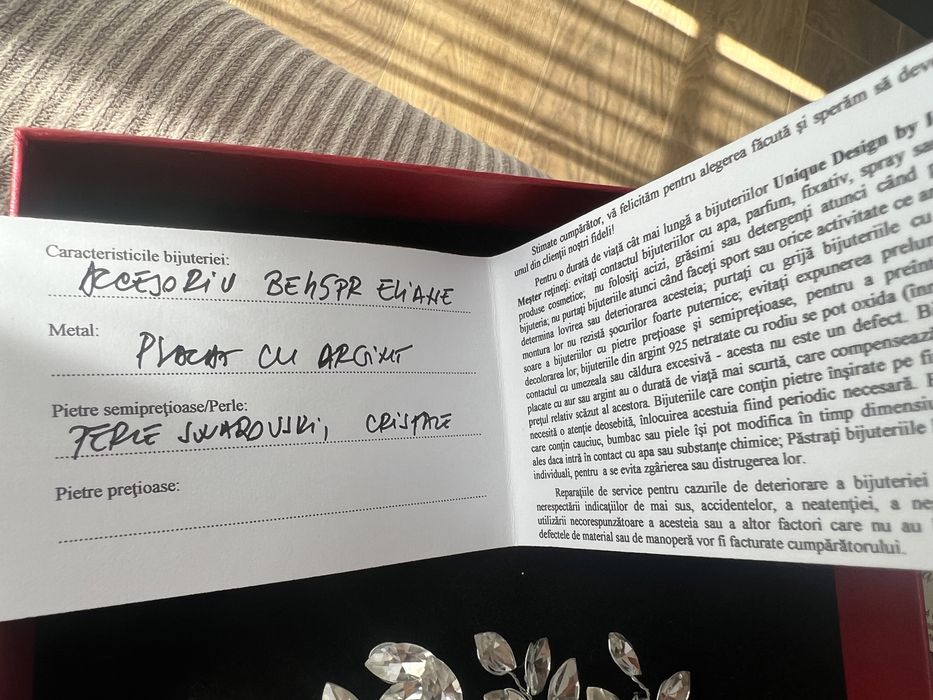 Caracteristicile bijuteriei:
ACCESORIU BEHSPR ELIANE
Metal:
PLACAT CU ARGINT
Pietre semiprețioase/Perle:
PERLE SWAROVSKI, CRISTALE
Pietre prețioase:
Stimate cumpărător, vă felicităm pentru alegerea făcută și sperăm să
unul din clienții noștri fideli!
Pentru o durată de viață cât mai lungă a bijuteriilor Unique Design by
Meșter rețineți: evitați contactul bijuteriilor cu apa, parfum, fixativ, spray
produse cosmetice; nu folosiți acizi, grăsimi sau detergenți atunci când
bijuteria; nu purtați bijuteriile atunci când faceți sport sau orice activitate ce
determina lovirea sau deteriorarea acesteia; purtați cu grijă bijuteriile cu
montura lor nu rezistă șocurilor foarte puternice; evitați expunerea
soare a bijuteriilor cu pietre prețioase și semiprețioase, pentru a
decolorarea lor; bijuteriile din argint 925 netratate cu rodiu se pot oxida
contactul cu umezeala sau căldura excesivă - acesta nu este un defect.
placate cu aur sau argint au o durată de viață mai scurtă, care
prețul relativ scăzut al acestora. Bijuteriile care conțin pietre înșirate pe
necesită o atenție deosebită, înlocuirea acestuia fiind periodic necesară.
care conțin cauciuc, bumbac sau piele își pot modifica în timp
ales daca intră în contact cu apa sau substanțe chimice; Păstrați bijuteriile
individuali, pentru a se evita zgârierea sau distrugerea lor.
Reparațiile de service pentru cazurile de deteriorare a bijuteriei
nerespectării indicațiilor de mai sus, accidentelor, a neatenției, a
utilizării necorespunzătoare a acesteia sau a altor factori care nu au
defectele de material sau de manoperă vor fi facturate cumpărătorului.